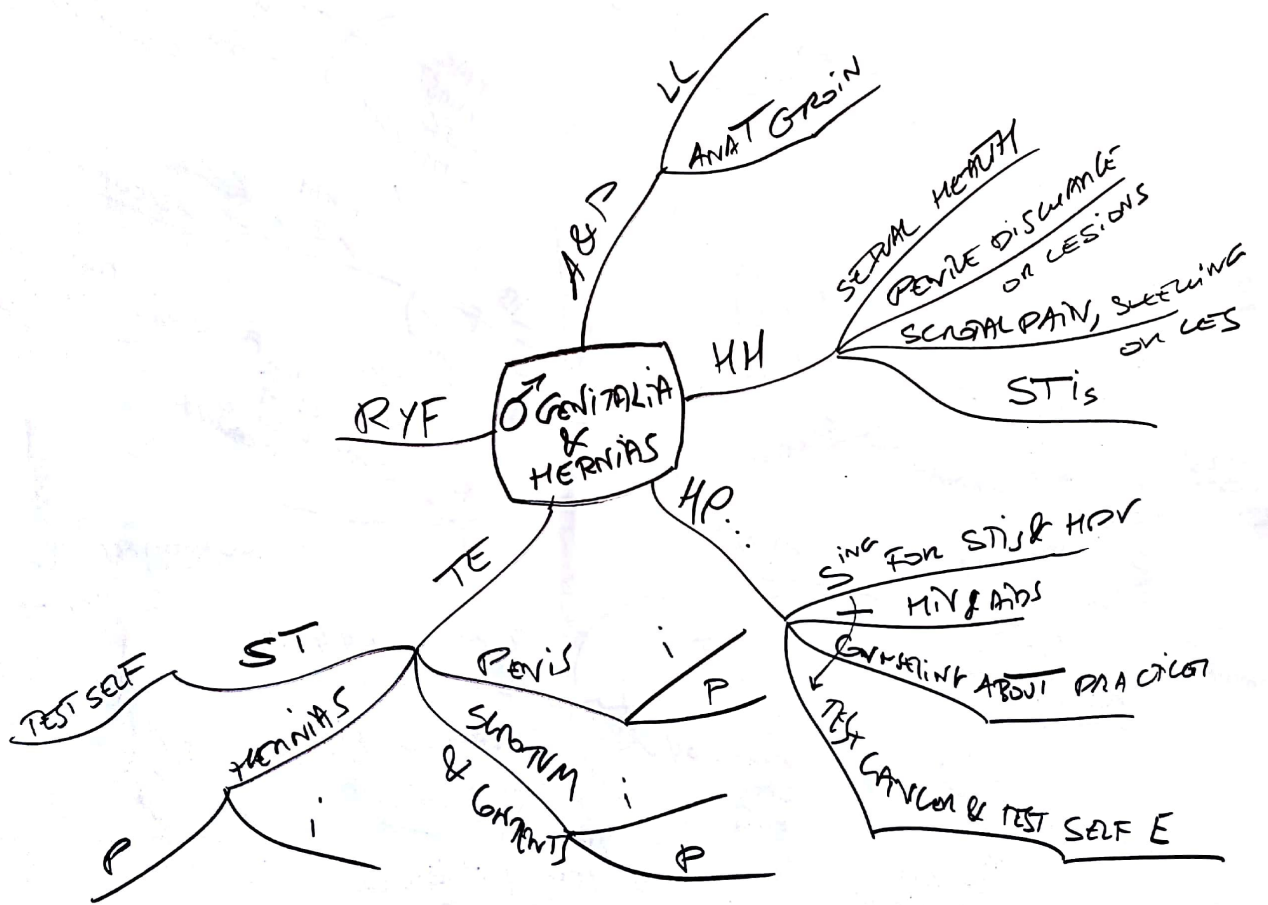 ♂ GENITALIA
&
HERNIAS
A & P
LL
ANAT GROIN
HH
SEXUAL HEALTH
PENILE DISCHARGE
OR LESIONS
SCROTAL PAIN, SWELLING
OR LES
STIs
HP...
S ING FOR STIs & HPV
+ HIV & AIDS
COUNSELING ABOUT PRACTICES
TEST CANCER & TEST SELF E
TE
PENIS
i
P
SCROTUM
& CONTENTS
i
P
HERNIAS
i
P
ST
TEST SELF
RYF